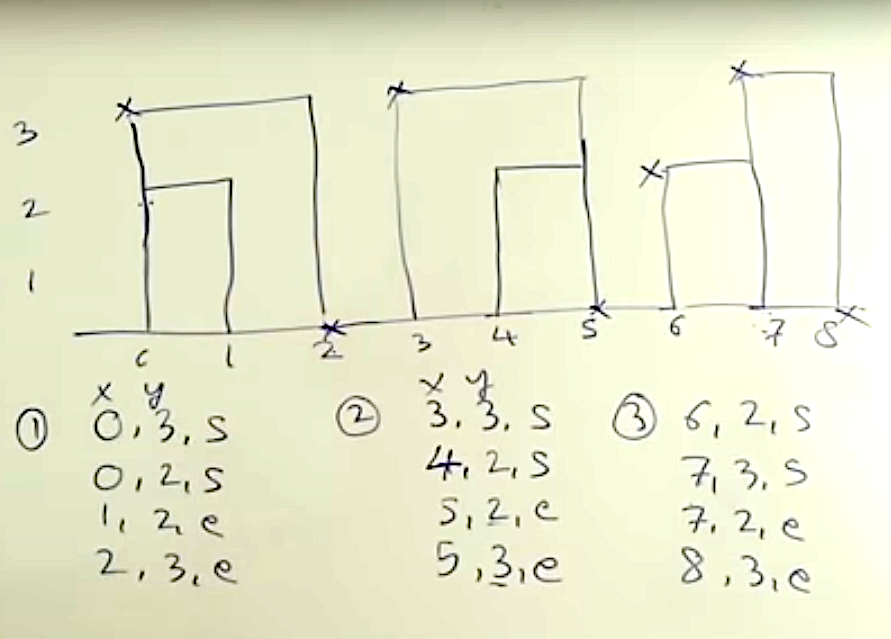 3
2
1
0 1 2 3 4 5 6 7 8
x y
x y
① 0, 3, s
0, 2, s
1, 2, e
2, 3, e
② 3, 3, s
4, 2, s
5, 2, e
5, 3, e
③ 6, 2, s
7, 3, s
7, 2, e
8, 3, e